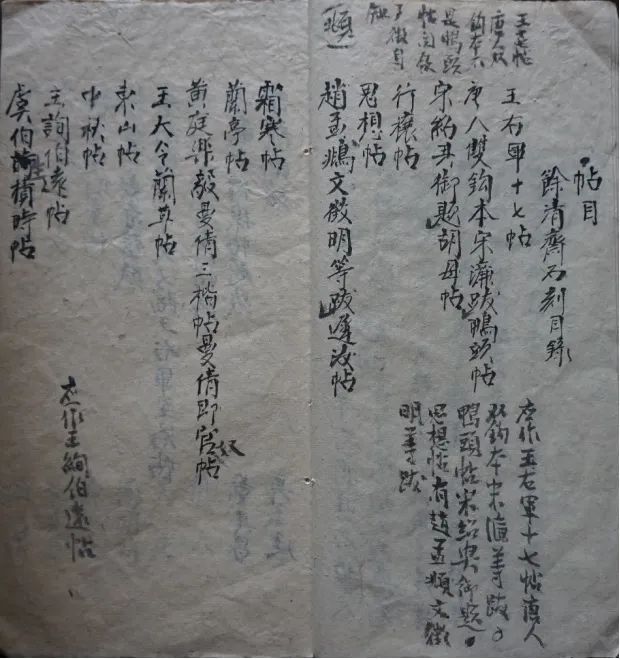 帖目
餘清齋石刻目錄
王右軍十七帖
唐人雙鉤本宋濂跋鴨頭帖
宋紹興御題胡母帖
行穰帖
思想帖
趙孟頫文徵明等跋遲汝帖
應作王右軍十七帖唐人
雙鉤本宋濂等跋
鴨頭帖宋紹興御題
思想帖有趙孟頫文徵
明等跋
霜寒帖
蘭亭帖
黃庭樂毅曼倩三楷帖曼倩即官奴帖
王大令蘭草帖
東山帖
中秋帖
王詢伯遠帖
虞伯施積時帖
應作王絢伯遠帖